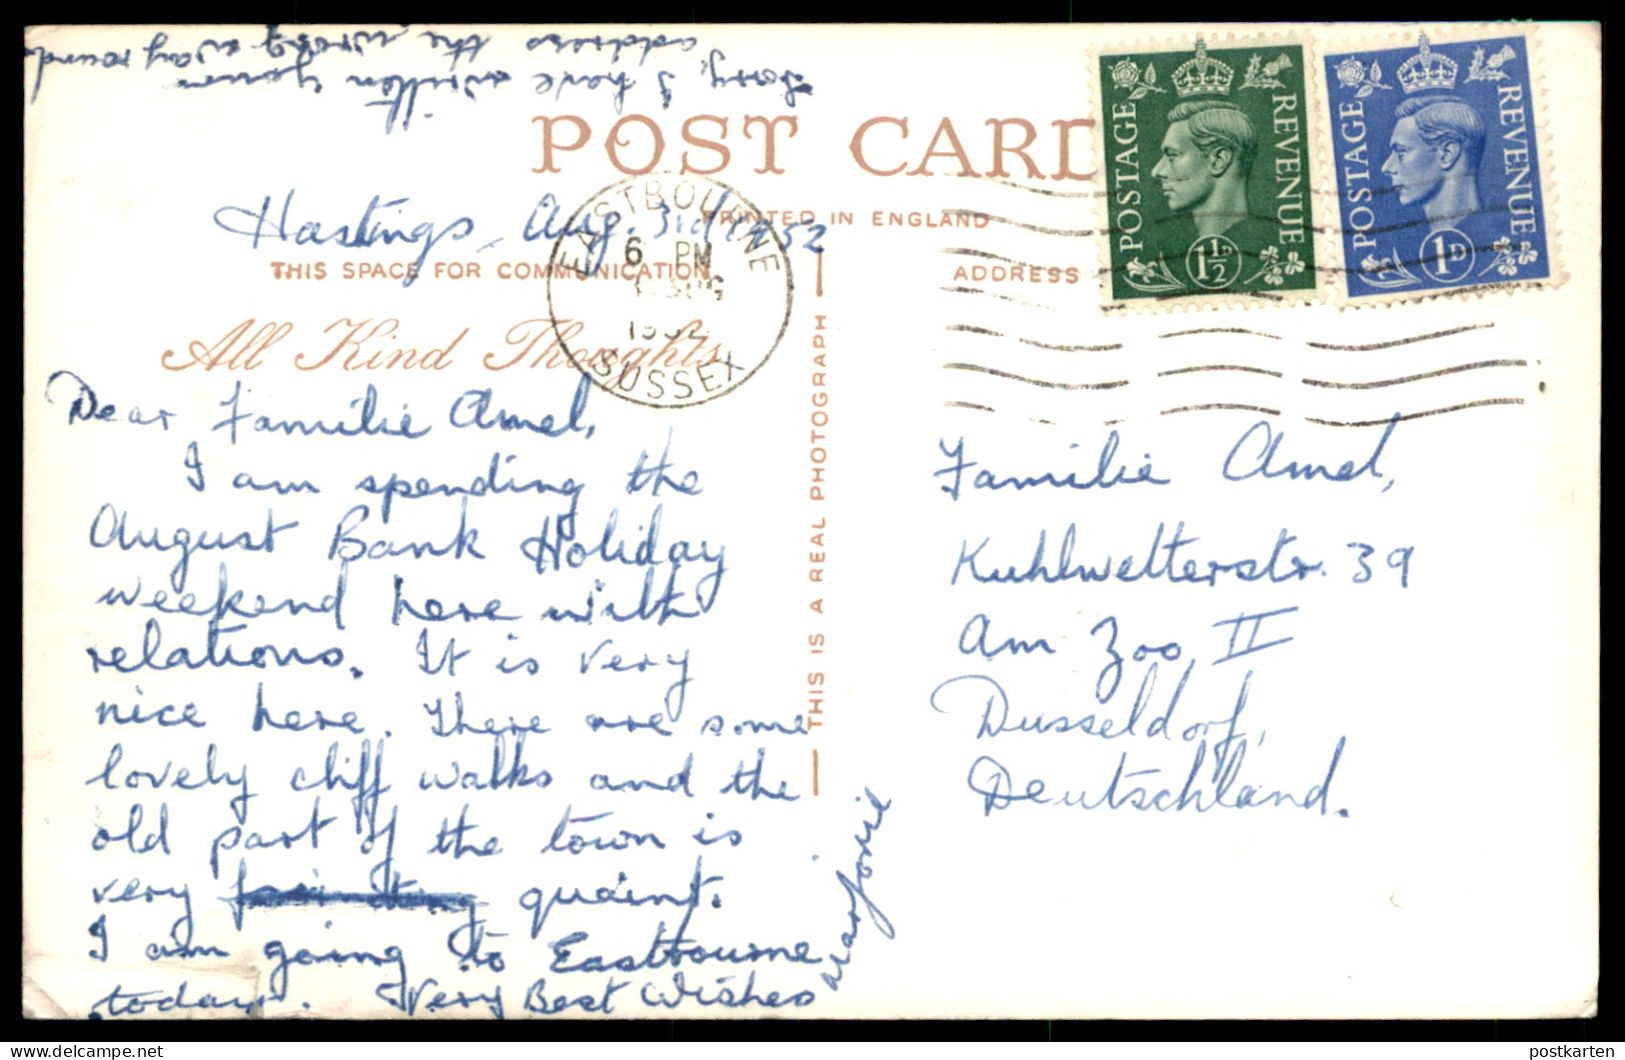 Sorry, I have written your
address the wrong way round
POST CARD
PRINTED IN ENGLAND
Hastings, Aug. 3rd 1952
THIS SPACE FOR COMMUNICATION
ADDRESS
EASTBOURNE
6 PM
AUG
1952
SUSSEX
POSTAGE REVENUE
1½D
POSTAGE REVENUE
1D
All Kind Thoughts
Dear Familie Amel,
I am spending the
August Bank Holiday
weekend here with
relations. It is very
nice here. There are some
lovely cliff walks and the
old part of the town is
very quaint.
I am going to Eastbourne
today. Very Best Wishes
Marjorie
THIS IS A REAL PHOTOGRAPH
Familie Amel,
Kuhlwetterstr. 39
Am Zoo II
Dusseldorf,
Deutschland.
postkarten